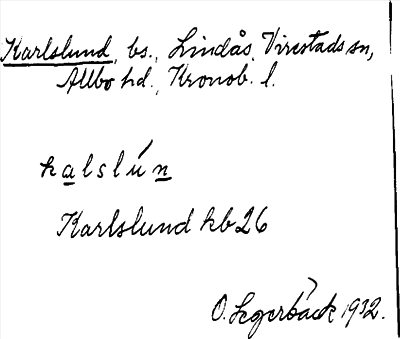 Karlslund, bs., Lindås, Virestads sn,
Allbo hd., Kronob. l.
kalslún
Karlslund kb 26
O. Segerbäck 1932.